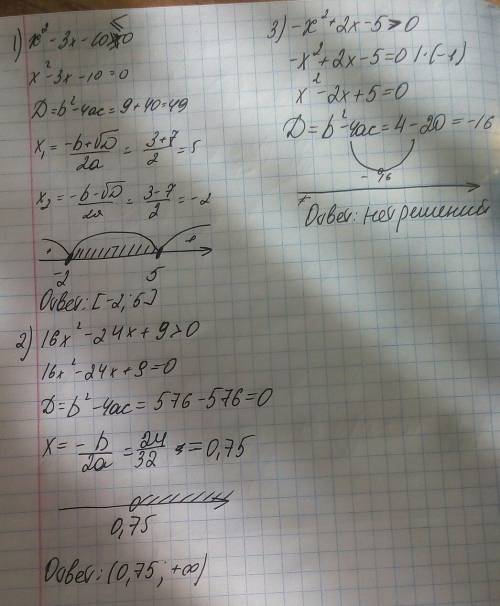 1) x² - 3x - 10 ≤ 0
x² - 3x - 10 = 0
D = b² - 4ac = 9 + 40 = 49
x₁ = (-b + √D)/2a = (3 + 7)/2 = 5
x₂ = (-b - √D)/2a = (3 - 7)/2 = -2
-2 5
Ответ: [-2; 5]
2) 16x² - 24x + 9 > 0
16x² - 24x + 9 = 0
D = b² - 4ac = 576 - 576 = 0
x = -b/2a = 24/32 = 0,75
0,75
Ответ: (0,75; +∞)
3) -x² + 2x - 5 > 0
-x² + 2x - 5 = 0 | · (-1)
x² - 2x + 5 = 0
D = b² - 4ac = 4 - 20 = -16
-16
Ответ: нет решений